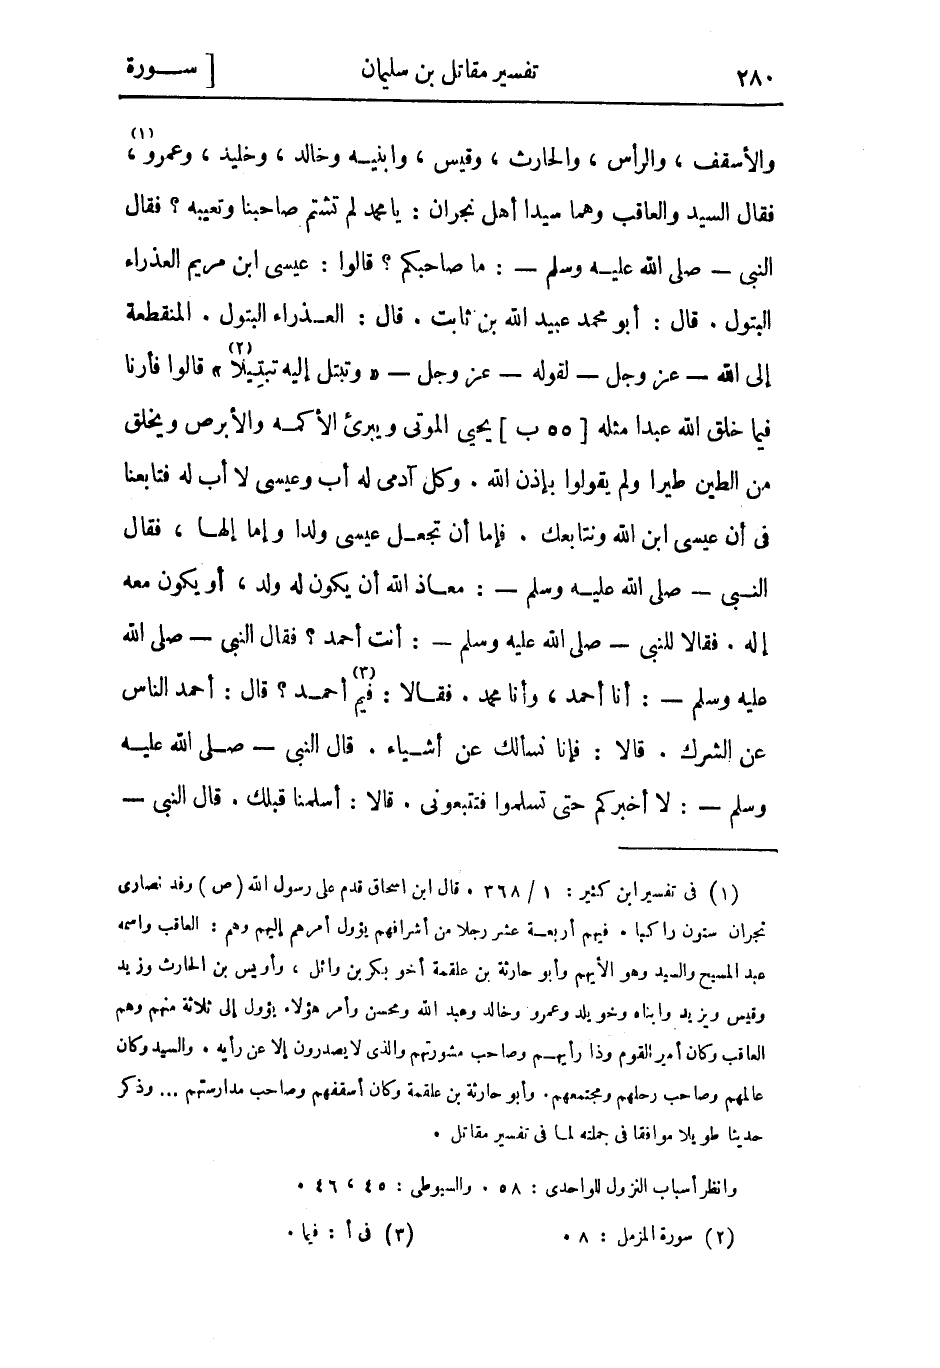 ٢٨٠ تفسير مقاتل بن سليمان [ ســـورة
والأسقف ، والرأس ، والحارث ، وقيس ، وابنيـه وخالد ، وخليد ، وعمرو (١) ،
فقال السيد والعاقب وهما سيدا أهل نجران : يا محمد لم تشتم صاحبنا وتعيبه ؟ فقال
النبى — صلى الله عليـه وسلم — : ما صاحبكم ؟ قالوا : عيسى ابن مريم العذراء
البتول . قال : أبو محمد عبيد الله بن ثابت . قال : العـذراء البتول . المنقطعة
إلى الله — عز وجل — لقوله — عز وجل — « وتبتل إليه تبتيلا (٢) » قالوا فأرنا
فيما خلق الله عبدا مثله [ ٥٥ ب ] يحيى الموتى ويبرئ الأكمـه والأبرص ويخلق
من الطين طيرا ولم يقولوا بإذن الله . وكل آدمى له أب وعيسى لا أب له فتابعنا
فى أن عيسى ابن الله ونتابعك . فإما أن تجعـل عيسى ولدا وإما إلهـا ، فقال
النـبى — صلى الله عليـه وسلم — : معـاذ الله أن يكون له ولد ، أو يكون معه
إله . فقالا للنبى — صلى الله عليه وسلم — : أنت أحمد ؟ فقال النبى — صلى الله
عليه وسلم — : أنا أحمد ، وأنا محمد . فقـالا : فيم (٣) أحمـد ؟ قال : أحمد الناس
عن الشرك . قالا : فإنا نسألك عن أشـياء . قال النبى — صـلى الله عليـه
وسلم — : لا أخبركم حتى تسلموا فتتبعونى . قالا : أسلمنا قبلك . قال النبى —
(١) فى تفسير ابن كثير : ١ / ٣٦٨ . قال ابن اسحاق قدم على رسول الله (ص) وفد نصارى
نجران ستون راكبا . فيهم أربعـة عشر رجلا من أشرافهم يؤول أمرهم إليهم وهم : العاقب واسمه
عبد المسيح والسيد وهو الأيهم وأبو حارثة بن علقمة أخو بكر بن وائل ، وأويس بن الحارث وزيد
وقيس ويزيد وابناه وخويلد وعمرو وخالد وعبد الله ومحسن وأمر هؤلاء يؤول إلى ثلاثة منهم وهم
العاقب وكان أمير القوم وذا رأيهـم وصاحب مشورتهم والذى لا يصدرون إلا عن رأيه . والسيد وكان
عالمهم وصاحب رحلهم ومجتمعهم. وأبو حارثة بن علقمة وكان أسقفهم وصاحب مدارستهم ... وذكر
حديثا طويلا موافقا فى جملته لمـا فى تفسير مقاتل .
وانظر أسباب النزول للواحدى : ٥٨ . والسيوطى : ٤٥ ، ٤٦ .
(٢) سورة المزمل : ٨ . (٣) فى أ : فيما .